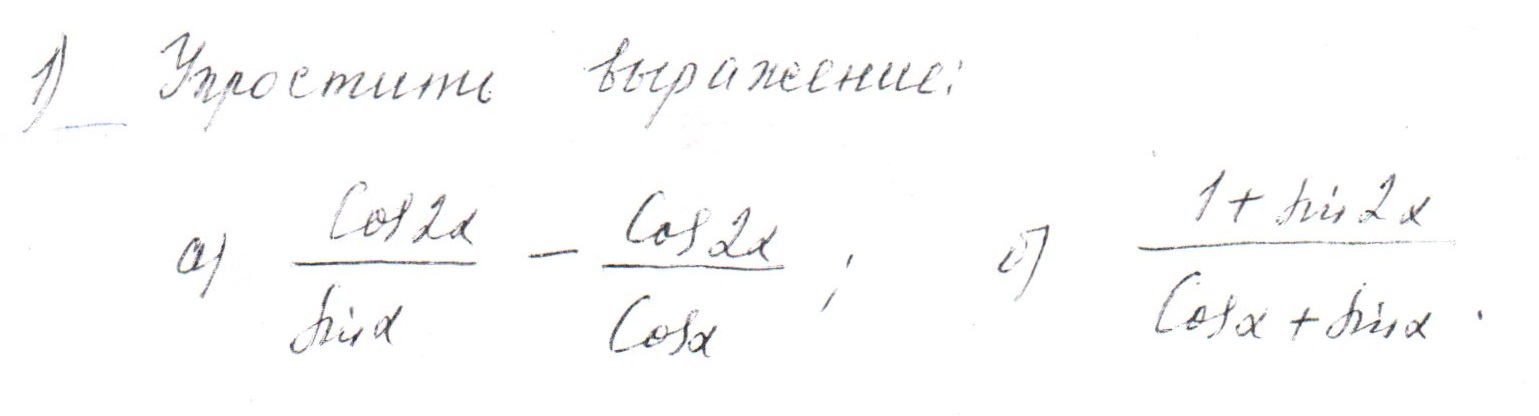 1) Упростить выражение:
а) Cos2α / sinα − Cos2α / Cosα ; б) 1 + sin2α / Cosα + sinα .